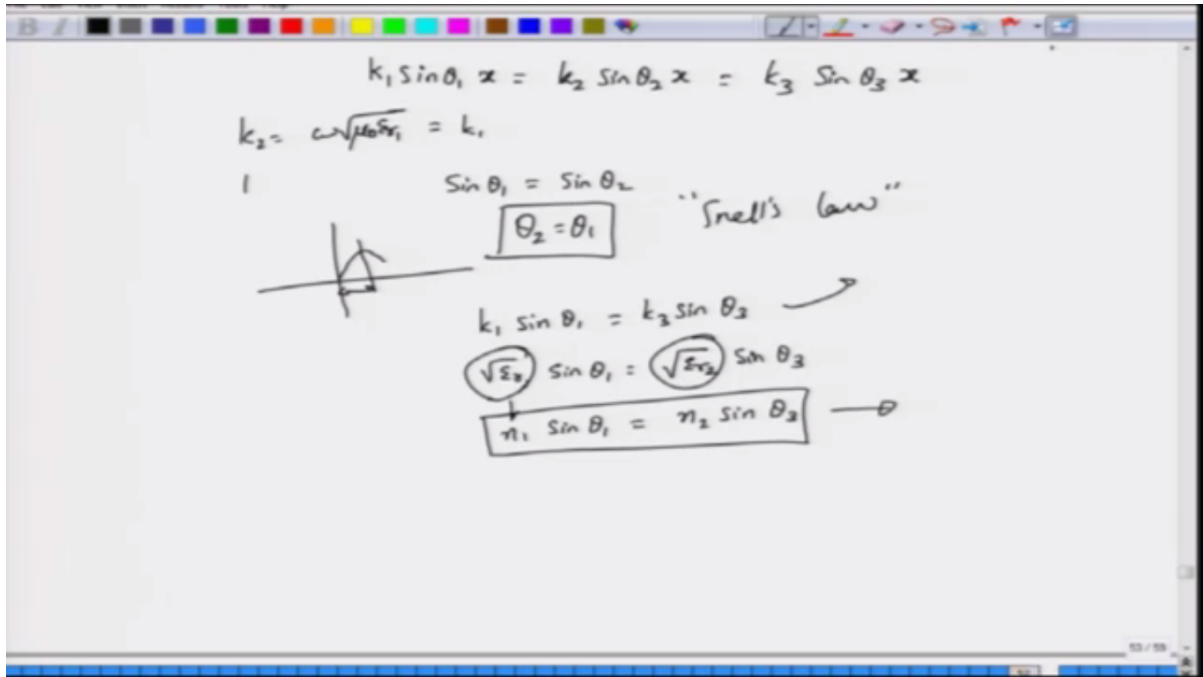 k₁ sinθ₁ x = k₂ sinθ₂ x = k₃ Sin θ₃ x
k₂ = ω√μ₀ε_r₁ = k₁
Sin θ₁ = Sin θ₂
θ₂ = θ₁ "Snell's law"
k₁ sin θ₁ = k₃ sin θ₃
√ε_r₁ sin θ₁ = √ε_r₂ sin θ₃
n₁ sin θ₁ = n₂ sin θ₃
53 / 59